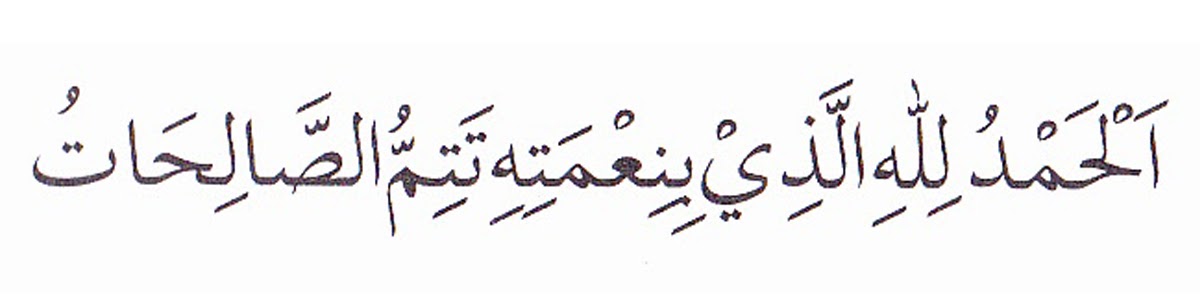 اَلْحَمْدُ لِلّٰهِ الَّذِيْ بِنِعْمَتِهِ تَتِمُّ الصَّالِحَاتُ